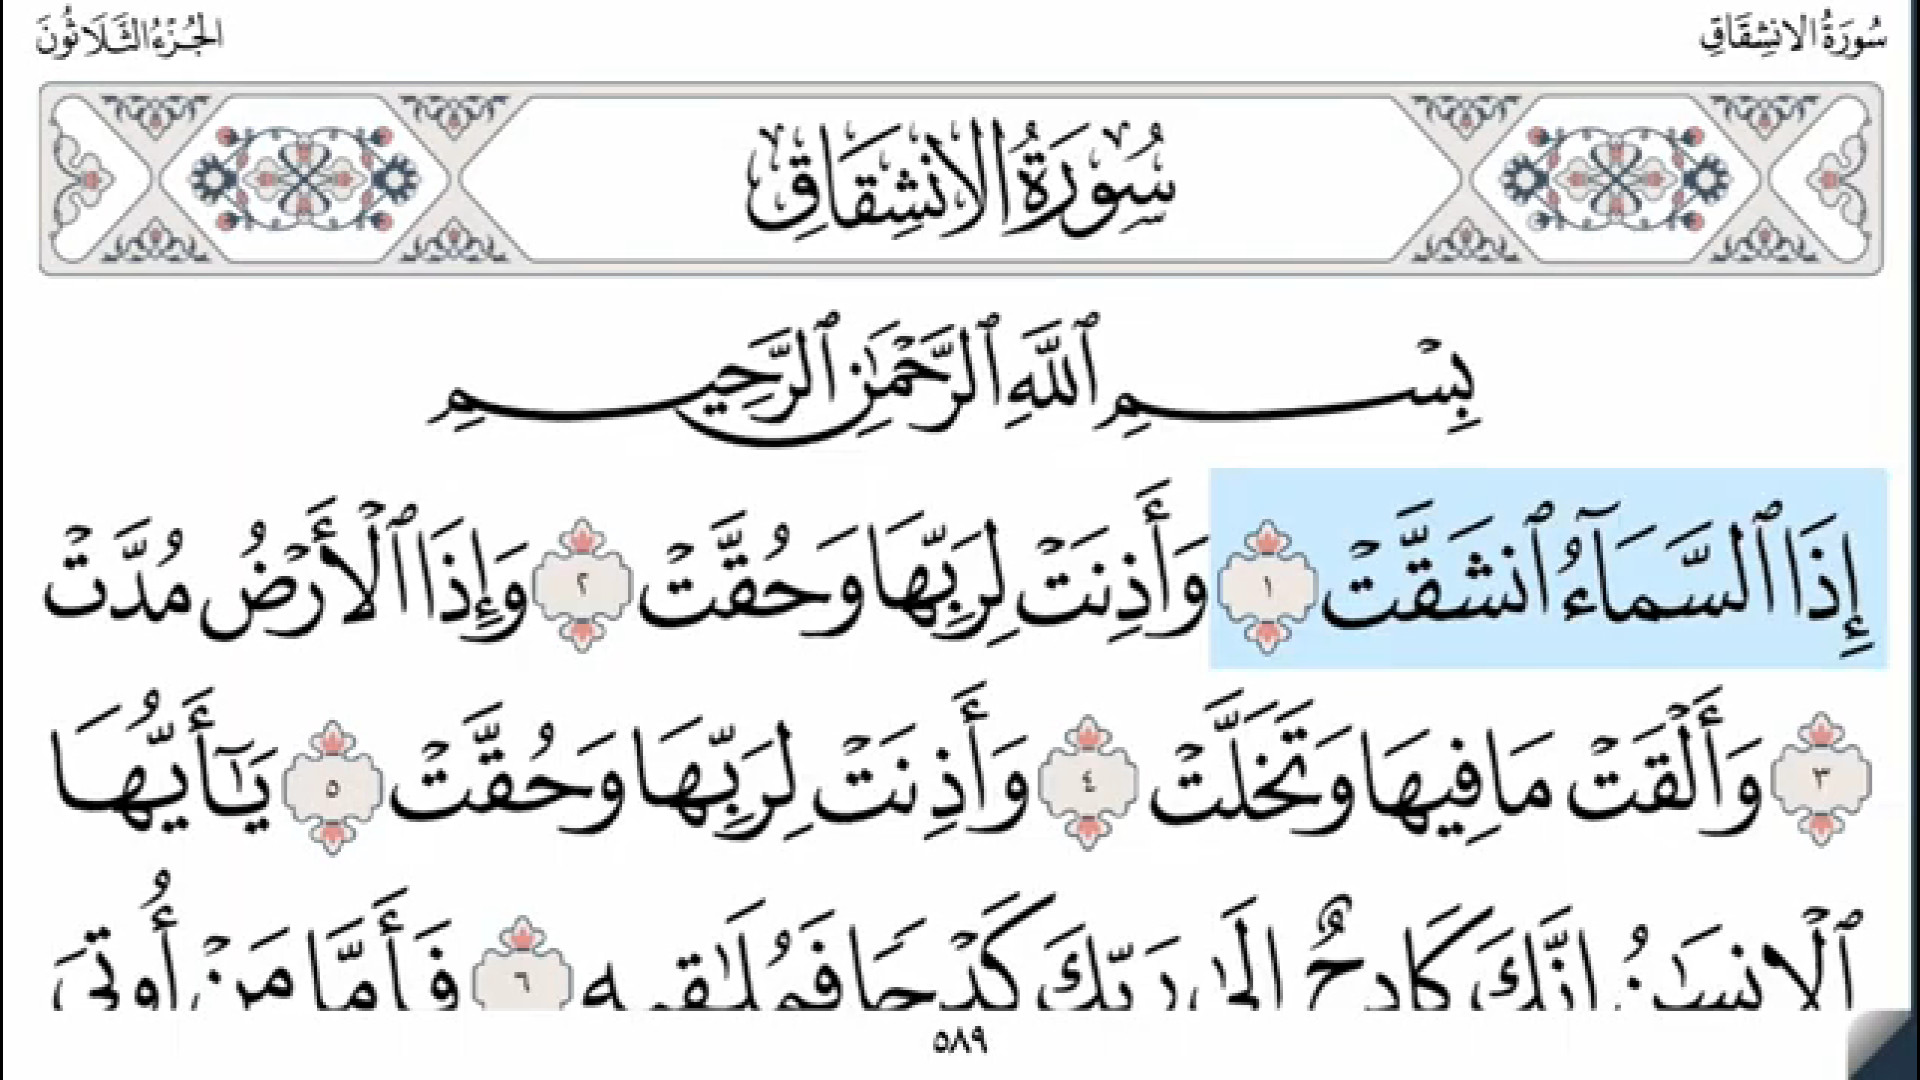 سُورَةُ الانشِقَاقِ
الجُزْءُ الثَّلَاثُونَ
سُورَةُ الانشِقَاقِ
بِسْمِ ٱللَّهِ ٱلرَّحْمَٰنِ ٱلرَّحِيمِ
إِذَا ٱلسَّمَآءُ ٱنشَقَّتْ ١ وَأَذِنَتْ لِرَبِّهَا وَحُقَّتْ ٢ وَإِذَا ٱلْأَرْضُ مُدَّتْ
٣ وَأَلْقَتْ مَا فِيهَا وَتَخَلَّتْ ٤ وَأَذِنَتْ لِرَبِّهَا وَحُقَّتْ ٥ يَٰٓأَيُّهَا
ٱلْإِنسَٰنُ إِنَّكَ كَادِحٌ إِلَىٰ رَبِّكَ كَدْحًا فَمُلَٰقِيهِ ٦ فَأَمَّا مَنْ أُوتِيَ
٥٨٩